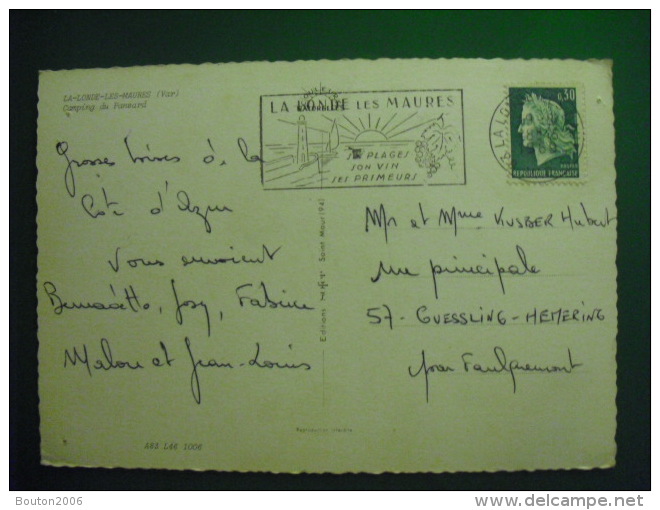 LA-LONDE-LES-MAURES (Var)
Camping du Pansard
LA LONDE LES MAURES
SES PLAGES
SON VIN
SES PRIMEURS
0,30
REPUBLIQUE FRANÇAISE
Grosses bises de la
Côte d'Azur
Vous envoient
Bernadette, Josy, Fabine
Malou et Jean-Louis
Editions
Saint Maur (94)
Mr et Mme KUSBER Hubert
rue principale
57 - GUESSLING - HEMERING
par Faulquemont
Reproduction interdite
A83 L46 1006
Bouton2006
delcampe.net